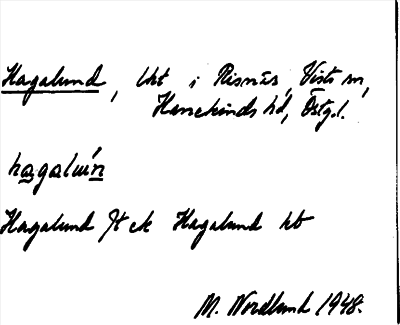 Hagalund, lht i Risnäs, Vists sn,
Hanekinds hd, Östg.l.
hagalún
Hagalund Jt ek Hagalund kb
M. Nordlund 1948.